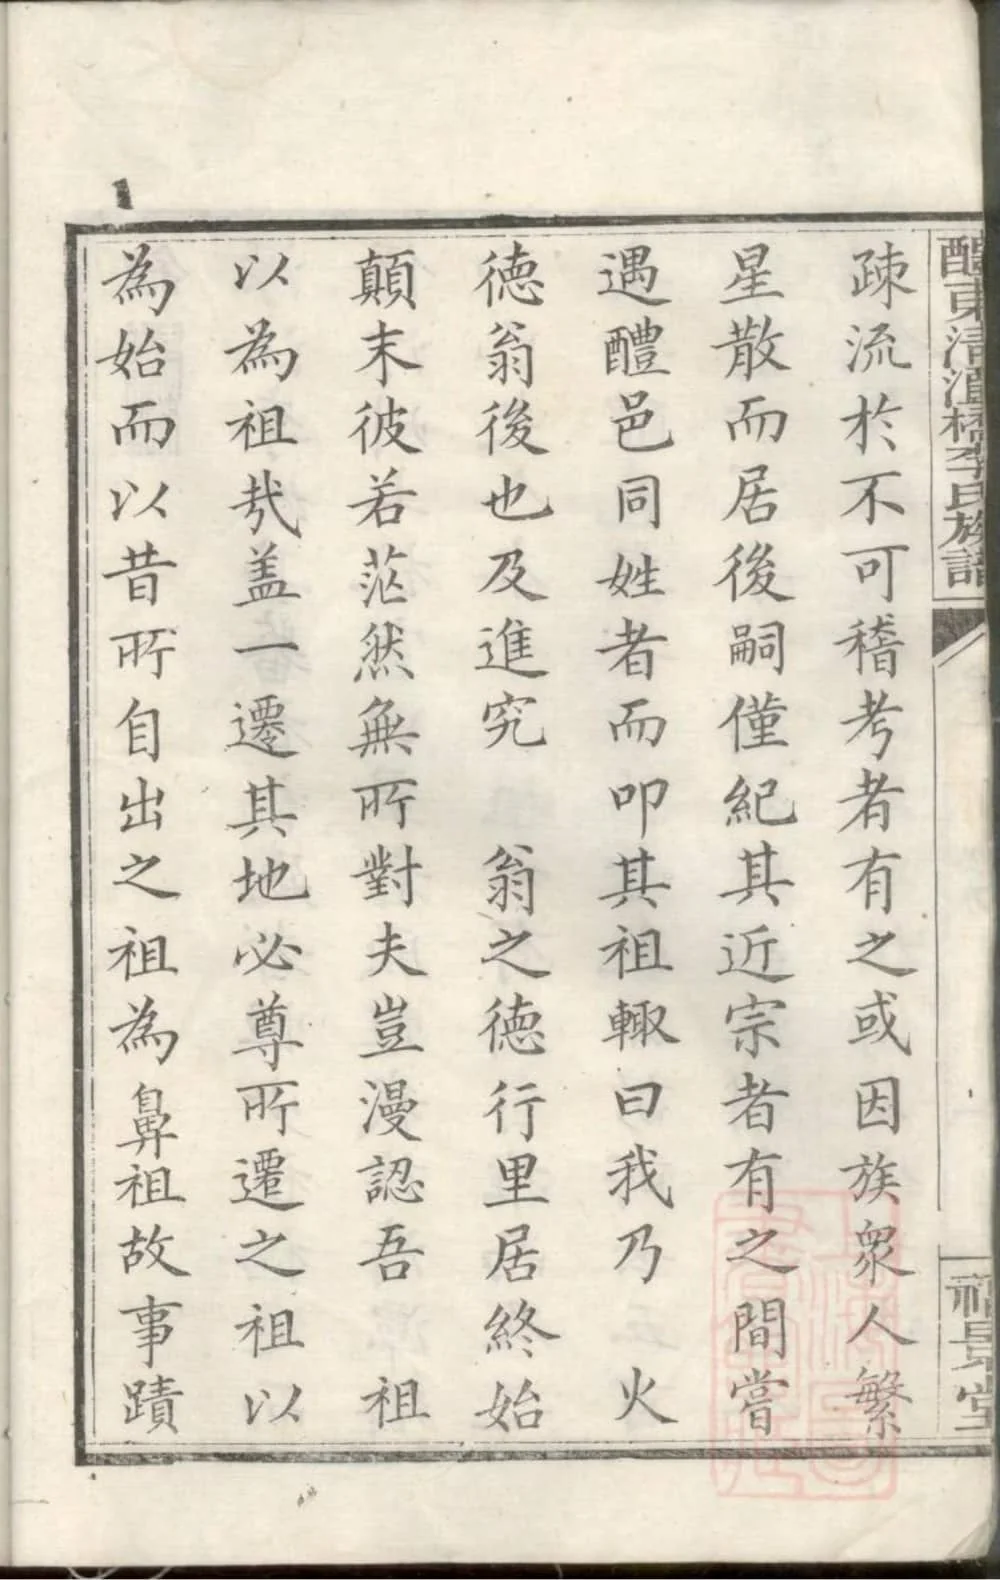 醴東清潭橋李氏族譜
福景堂
疎流於不可稽考者有之或因族衆人繁
星散而居後嗣僅紀其近宗者有之間嘗
遇醴邑同姓者而叩其祖輙曰我乃　火
德翁後也及進究　翁之德行里居終始
顛末彼若茫然無所對夫豈漫認吾　祖
以為祖哉盖一遷其地必尊所遷之祖以
為始而以昔所自出之祖為鼻祖故事蹟